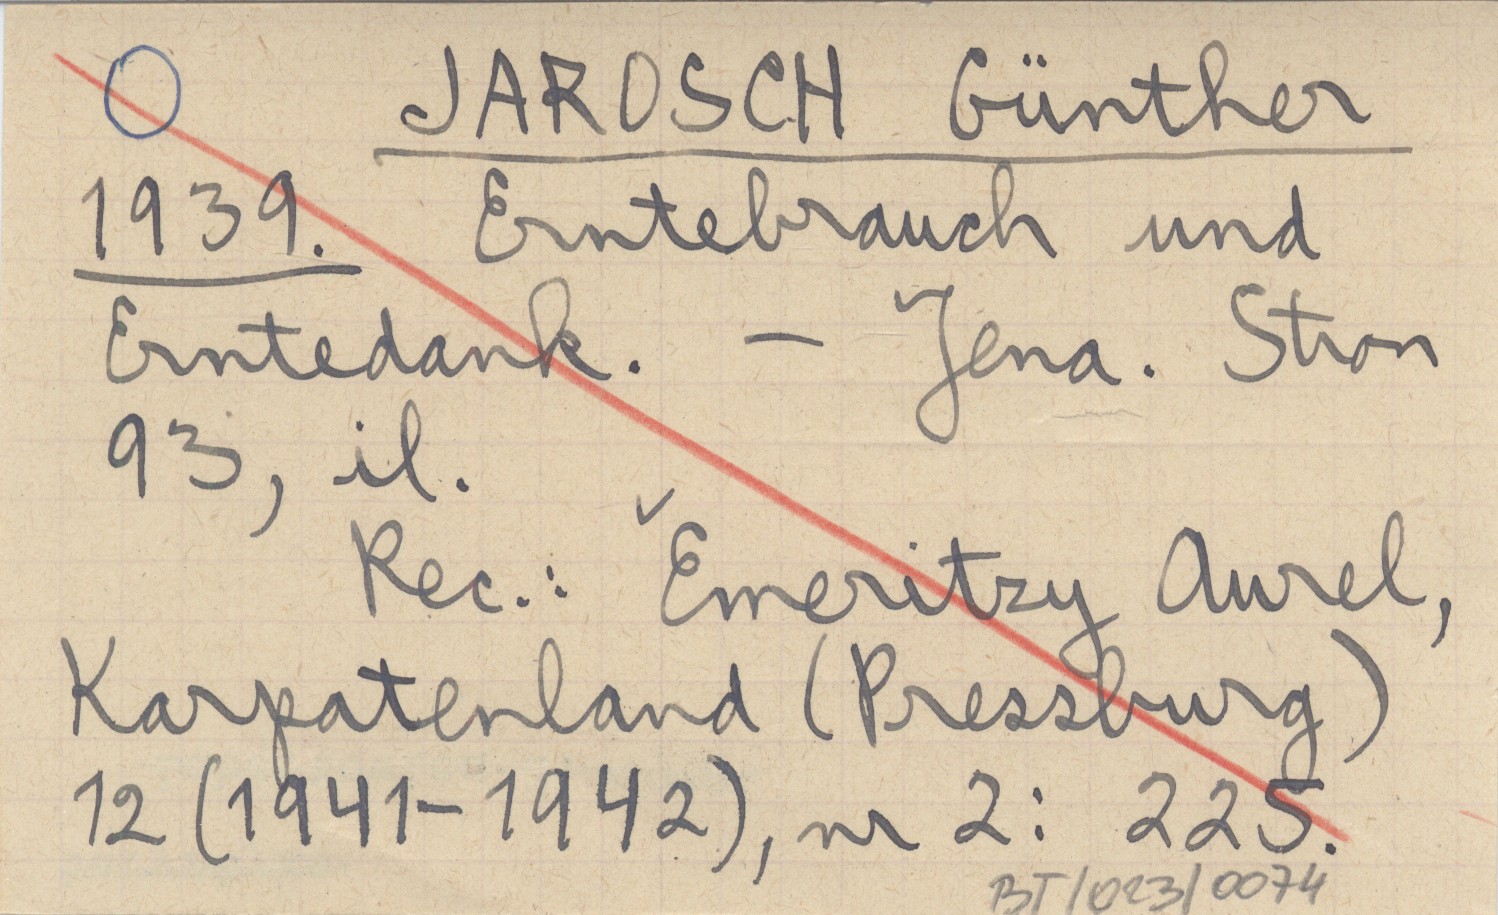 JAROSCH Günther
1939. Erntebrauch und
Erntedank. — Jena. Stron
93, il.
Rec.: Emeritzy Aurel,
Karpatenland (Pressburg)
12 (1941-1942), nr 2: 225.
BT/023/0074